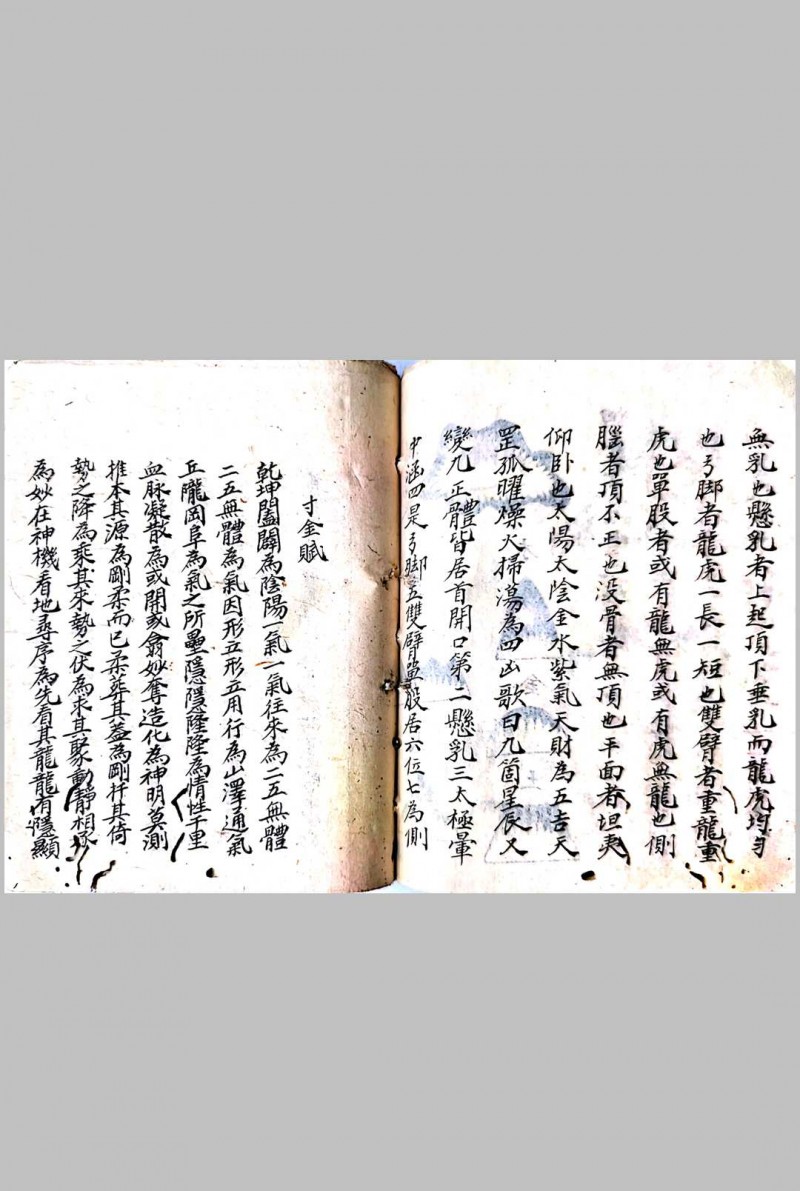 無乳也懸乳者上起頂下垂乳而龍虎均等
也弓脚者龍虎一長一短也雙臂者重龍重
虎也單股者或有龍無虎或有虎無龍也側
腦者頂不正也没骨者無頂也平面者坦夷
仰卧也太陽太陰金水紫氣天財為五吉天
罡孤曜燥火掃蕩為四凶歌曰九箇星辰又
變九正體皆居首開口第二懸乳三太極暈
中涵四是弓脚五雙臂單股居六位七為側
寸金賦
乾坤闔闢為陰陽一氣一氣往來為二五無體
二五無體為氣因形立形立用行為山澤通氣
丘隴岡阜為氣之所壘隱隱隆隆為情性千里
血脉凝散為或開或翕妙奪造化為神明莫測
推本其源為剛柔而已柔葬其益為剛扦其倚
勢之降為乘其來勢之伏為求其聚動靜相
為妙在神機看地尋序為先看其龍龍有隱顯